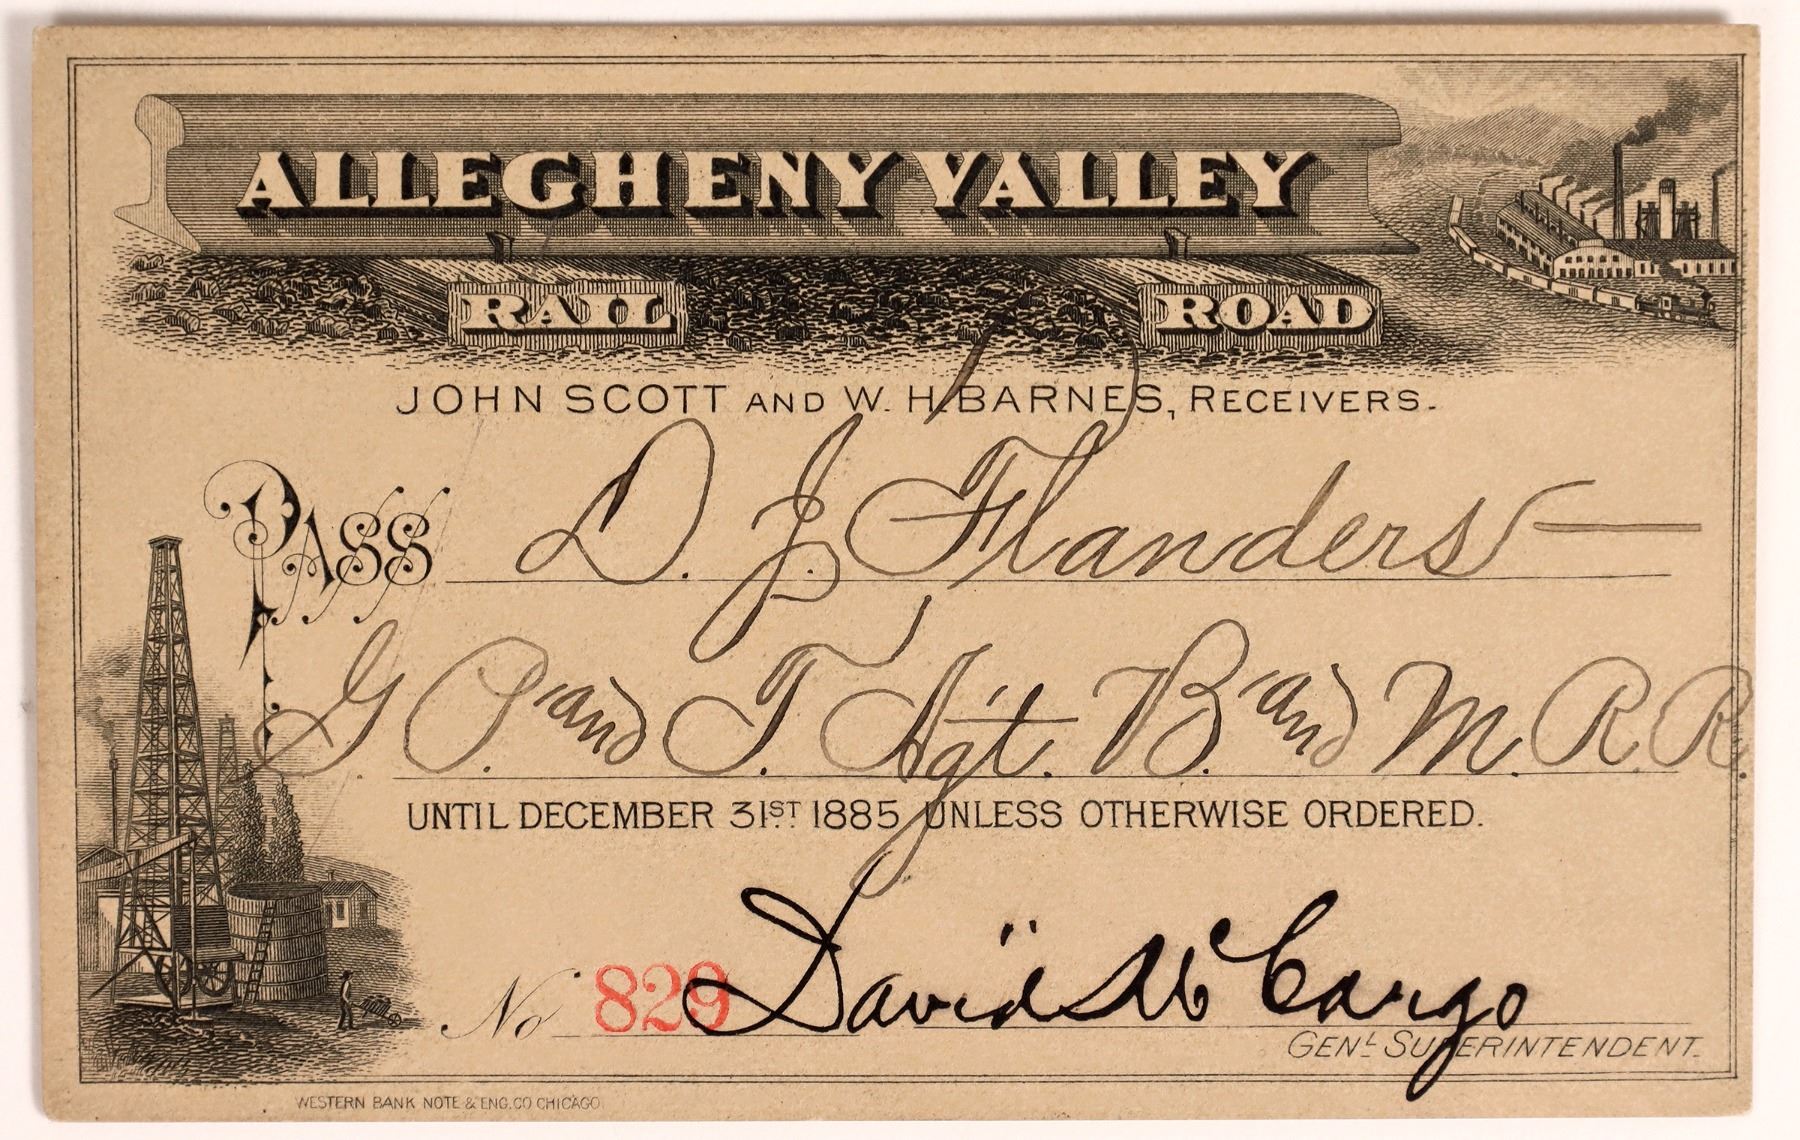 ALLEGHENY VALLEY
RAIL ROAD
JOHN SCOTT AND W. H. BARNES, RECEIVERS.
PASS D. J. Flanders
G. P. and T. Agt. B. and M. R. R.
UNTIL DECEMBER 31ST 1885 UNLESS OTHERWISE ORDERED.
No 829 David McCargo
GENL SUPERINTENDENT.
WESTERN BANK NOTE & ENG. CO CHICAGO.